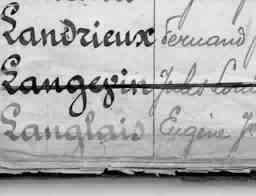 Landrieux Fernand
Langevin Jules Louis
Langlais Eugène